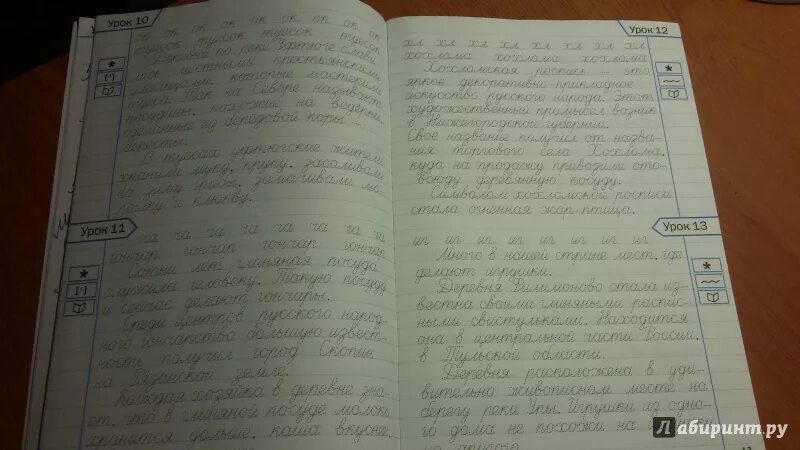 Урок 10
ок ок ок ок ок ок ок ок
туесок туесок туесок туесок
Деревни по реке Уфтюге слави-
лись местными крестьянскими
умельцами, которые мастерили
туеса. Так на Севере называют
посудины, похожие на ведёрки,
сделанные из берёзовой коры -
бересты.
В туесах уфтюгские жители
хранили муку, крупу, засаливали
на зиму грибы, замачивали мо-
рошку и клюкву.
Урок 11
ча ча ча ча ча ча ча ча
гончар гончар гончар гончар
Сотни лет глиняная посуда
служила человеку. Такую посуду
и сейчас делают гончары.
Среди центров русского народ-
ного гончарства большую извест-
ность получил город Скопин
на Рязанской земле.
Каждая хозяйка в деревне зна-
ет, что в глиняной посуде молоко
хранится дольше, каша вкуснее.
Урок 12
хл хл хл хл хл хл хл хл
хохлома хохлома хохлома
Хохломская роспись - это
яркое декоративно-прикладное
искусство русского народа. Этот
художественный промысел возник
в Нижегородской губернии.
Своё название получил от назва-
ния торгового села Хохлома,
куда на продажу привозили ото-
всюду деревянную посуду.
Символом хохломской росписи
стала огненная жар-птица.
Урок 13
иг иг иг иг иг иг иг
Много в нашей стране мест, где
делают игрушки.
Деревня Филимоново стала из-
вестна своими глиняными распис-
ными свистульками. Находится
она в центральной части России,
в Тульской области.
Деревня расположена в уди-
вительно живописном месте на
берегу реки Упы. Игрушки из одно-
го дома не похожи на игрушки
из другого
Лабиринт.ру